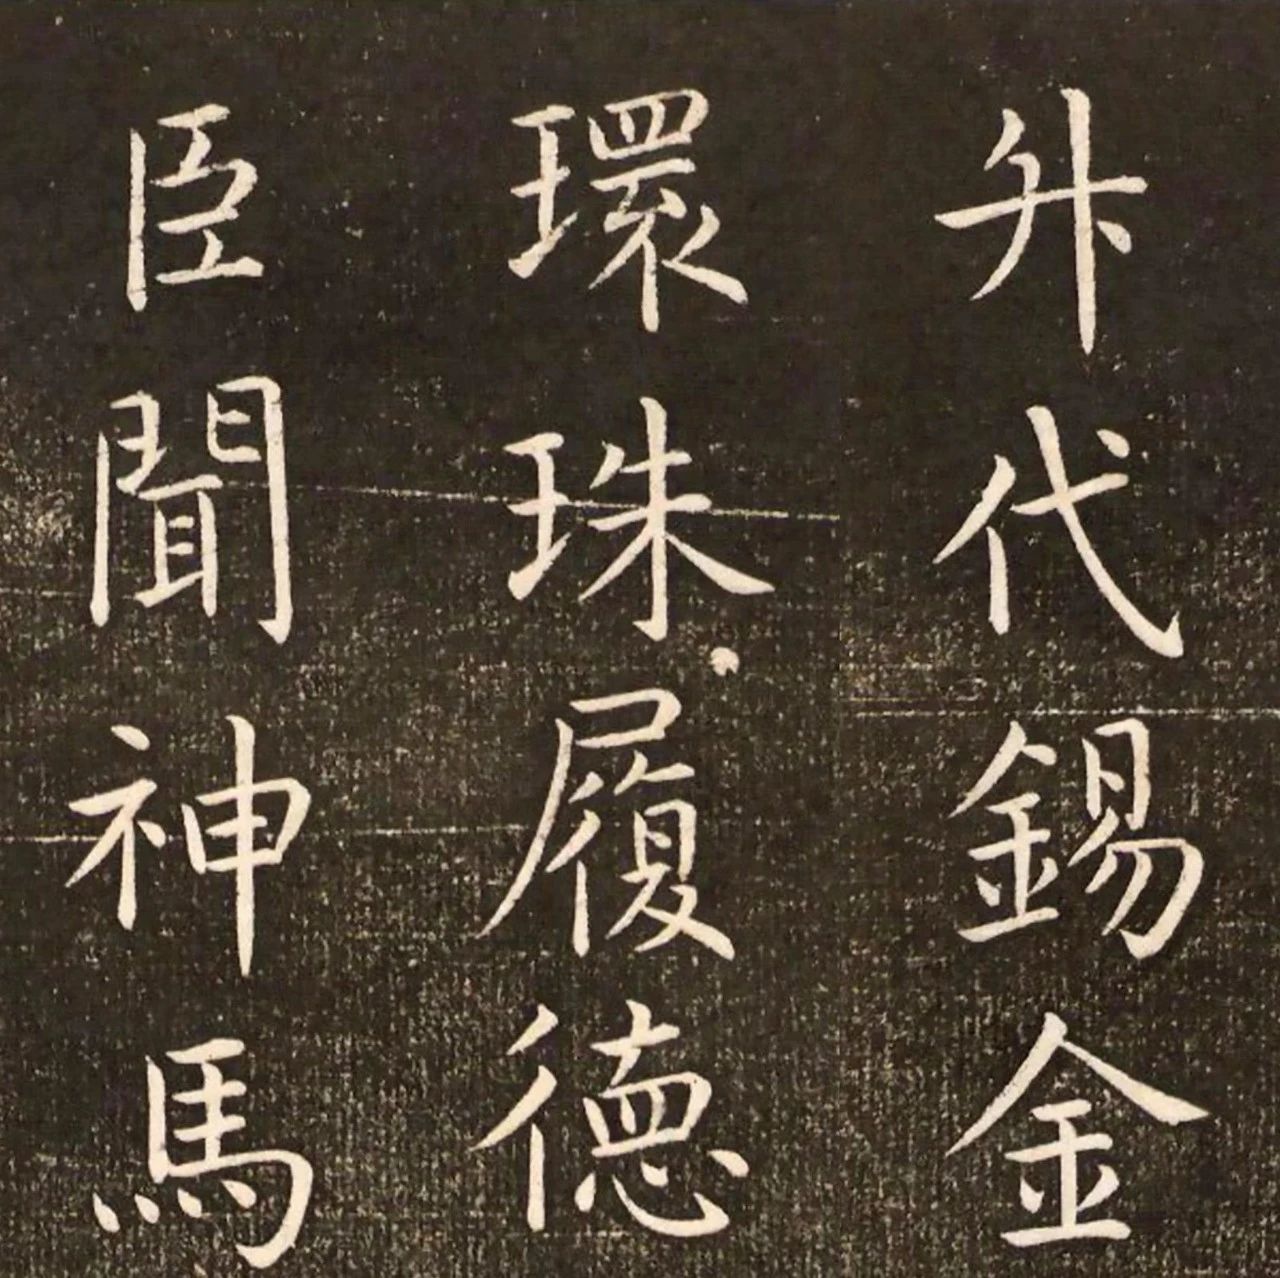 升代錫金
環珠履德
臣聞神馬